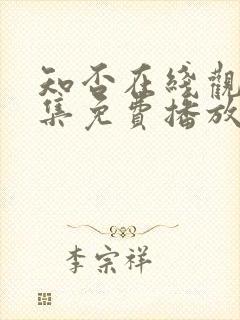 知否在綫觀
集免費播放
李宗祥